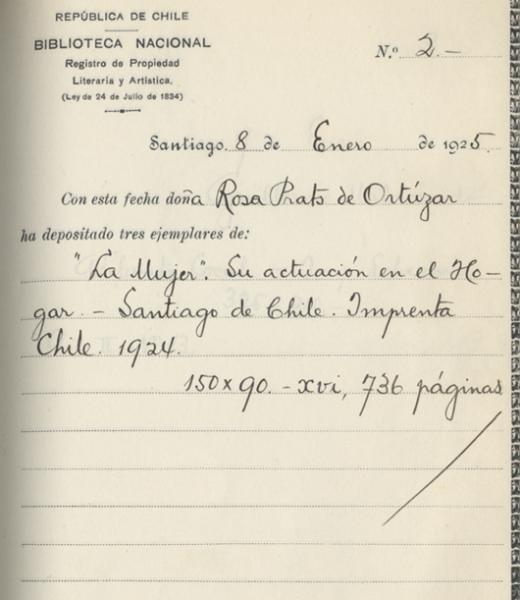 REPÚBLICA DE CHILE
BIBLIOTECA NACIONAL
Registro de Propiedad
Literaria y Artística.
(Ley de 24 de Julio de 1834)
N.º 2.-
Santiago, 8 de Enero de 1925.
Con esta fecha doña Rosa Prats de Ortúzar
ha depositado tres ejemplares de:
"La Mujer". Su actuación en el Ho-
gar. - Santiago de Chile. Imprenta
Chile. 1924.
150 x 90. - xvi, 736 páginas